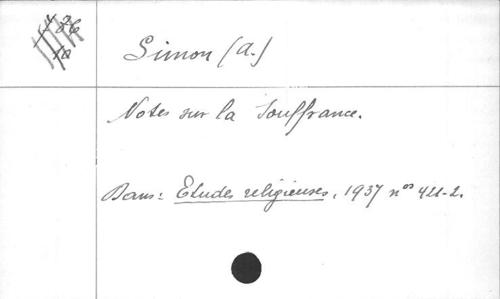 Simon (A.)
Notes sur la Souffrance.
Dans: Etudes religieuses, 1937 nos 421-2.